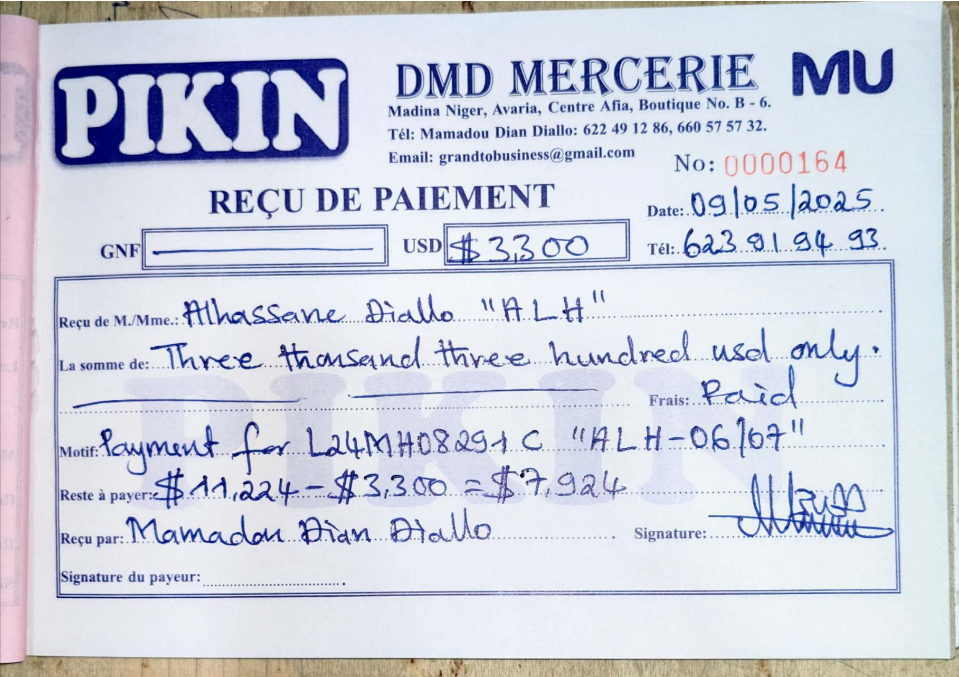 PIKIN
DMD MERCERIE
MU
Madina Niger, Avaria, Centre Afia, Boutique No. B - 6.
Tél: Mamadou Dian Diallo: 622 49 12 86, 660 57 57 32.
Email: grandtobusiness@gmail.com
No: 0000164
REÇU DE PAIEMENT
Date: 09/05/2025
GNF
USD $3,300
Tél: 623 91 94 93
Reçu de M./Mme.: Alhassane Diallo "ALH"
La somme de: Three thousand three hundred usd only.
Frais: Paid
Motif: Payment for L24MH08291C "ALH-06/07"
Reste à payer: $11,224 - $3,300 = $7,924
Reçu par: Mamadou Dian Diallo
Signature:
Signature du payeur:
PIKIN